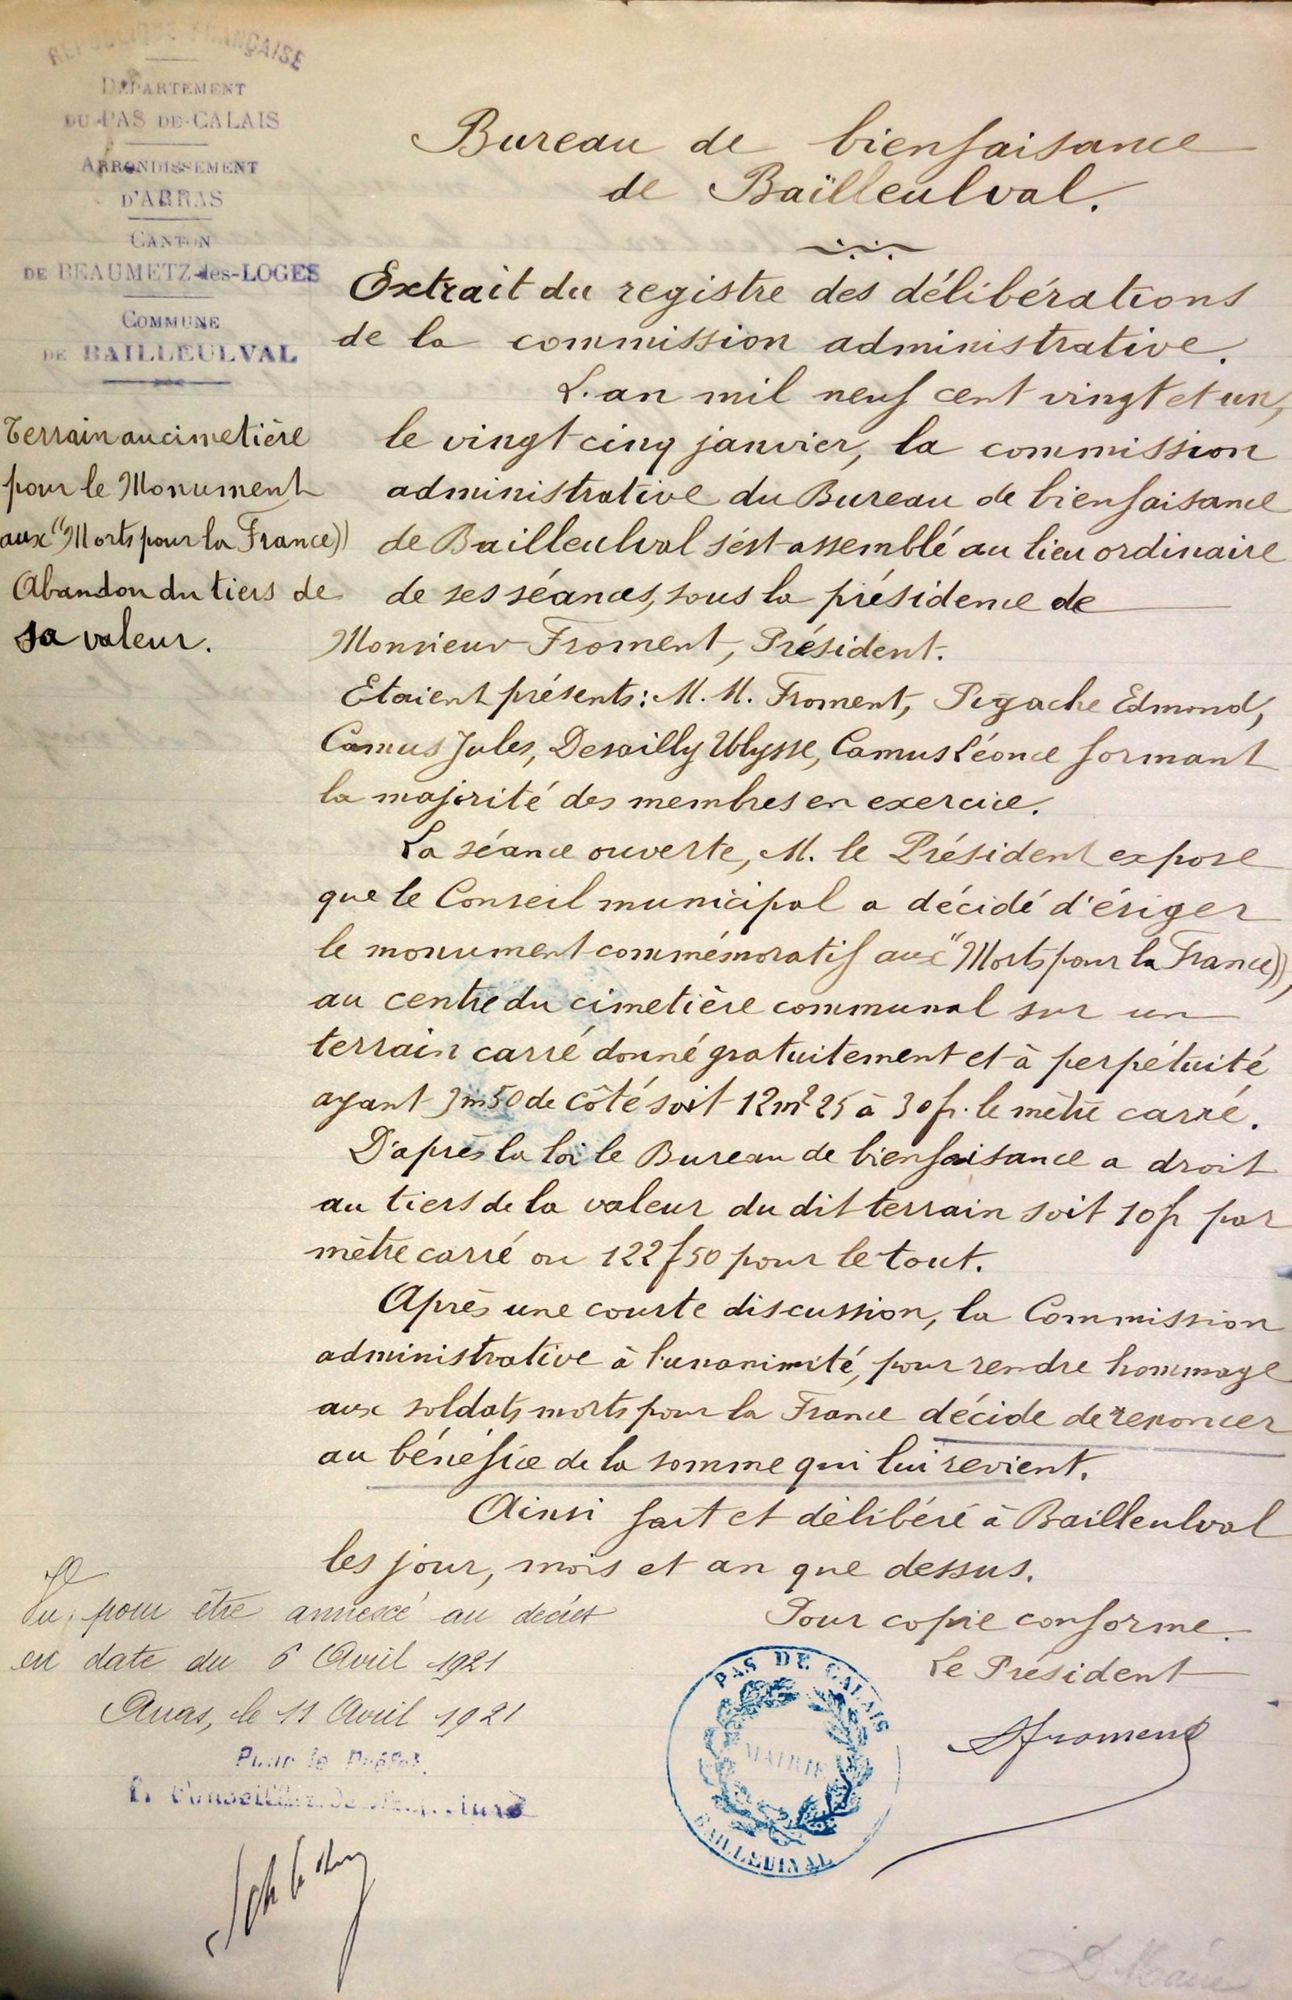 RÉPUBLIQUE FRANÇAISE
DÉPARTEMENT
DU PAS DE-CALAIS
ARRONDISSEMENT
D'ARRAS
CANTON
DE BEAUMETZ-des-LOGES
COMMUNE
DE BAILLEULVAL
Terrain au cimetière
pour le Monument
aux "Morts pour la France))
Abandon du tiers de
sa valeur.
Bureau de bienfaisance
de Baïlleulval.
Extrait du registre des délibérations
de la commission administrative.
L'an mil neuf cent vingt et un,
le vingt cinq janvier, la commission
administrative du Bureau de bienfaisance
de Bailleulval s'est assemblé au lieu ordinaire
de ses séances, sous la présidence de
Monsieur Froment, Président.
Etaient présents: M. M. Froment, Pigache Edmond,
Camus Jules, Desailly Ulysse, Camus Léonce formant
la majorité des membres en exercice.
La séance ouverte, M. le Président expose
que le Conseil municipal a décidé d'ériger
le monument commémoratif aux "Morts pour la France)),
au centre du cimetière communal sur un
terrain carré donné gratuitement et à perpétuité
ayant 3m50 de côté soit 12m² 25 à 30f. le mètre carré.
D'après la loi le Bureau de bienfaisance a droit
au tiers de la valeur du dit terrain soit 10f par
mètre carré ou 122f50 pour le tout.
Après une courte discussion, la Commission
administrative à l'unanimité, pour rendre hommage
aux soldats morts pour la France décide de renoncer
au bénéfice de la somme qui lui revient.
Ainsi fait et délibéré à Bailleulval
les jour, mois et an que dessus.
Pour copie conforme.
Le Président
Sfroment
Vu pour être annexé au décret
en date du 6 Avril 1921
Arras, le 11 Avril 1921
Pour le Préfet,
Conseiller de Préfecture
PAS DE CALAIS
MAIRIE
BAILLEULVAL